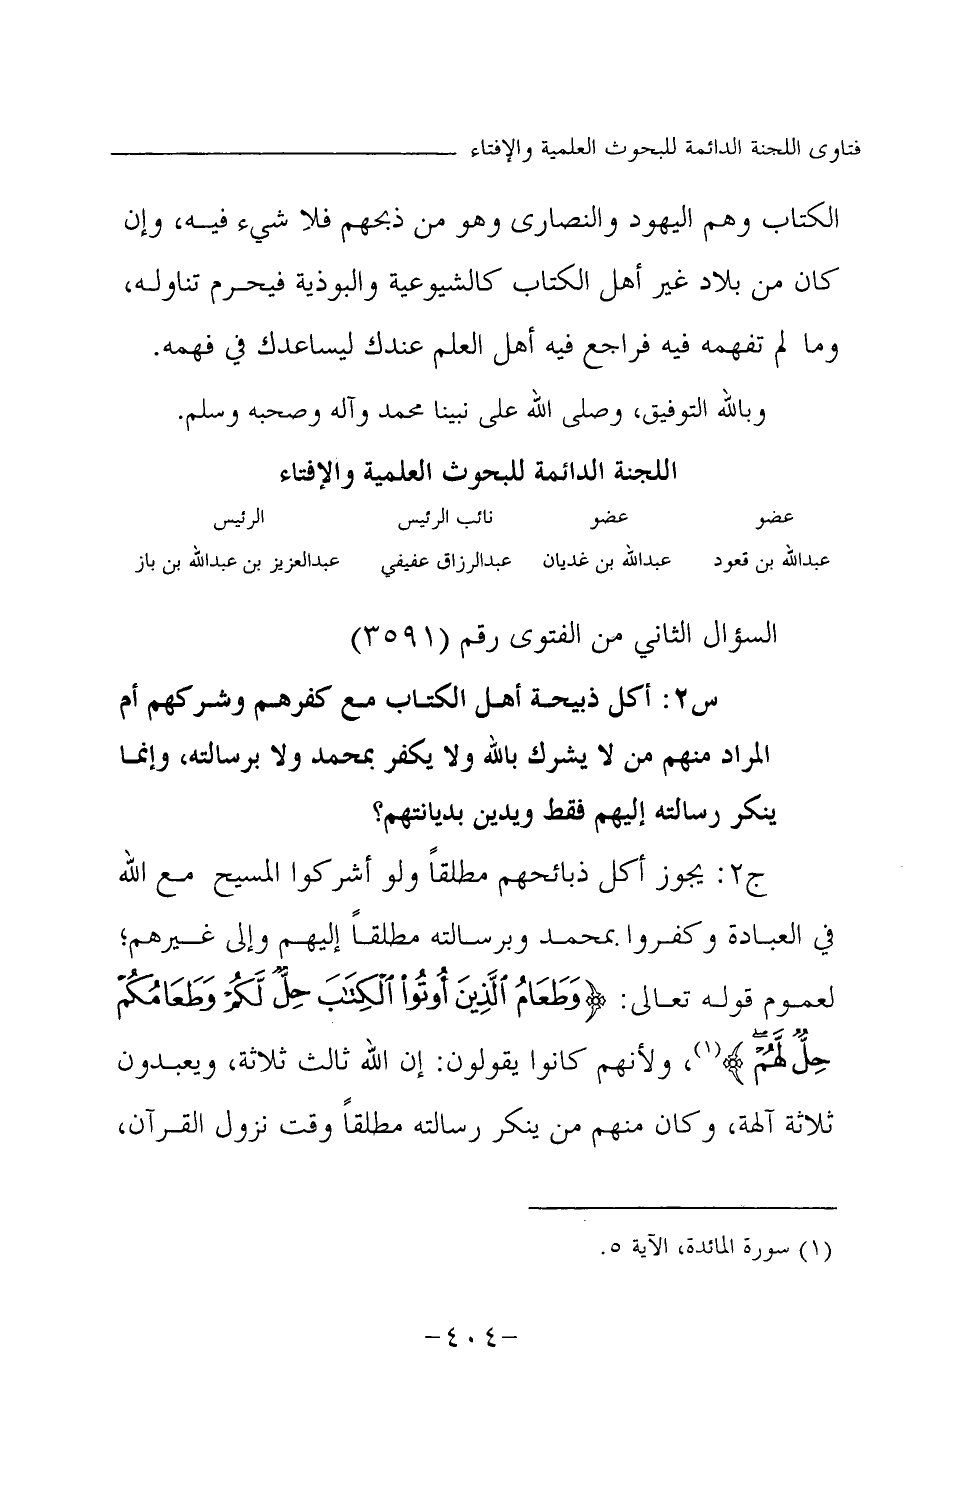 فتاوى اللجنة الدائمة للبحوث العلمية والإفتاء
الكتاب وهم اليهود والنصارى وهو من ذبحهم فلا شيء فيه، وإن
كان من بلاد غير أهل الكتاب كالشيوعية والبوذية فيحرم تناوله،
وما لم تفهمه فيه فراجع فيه أهل العلم عندك ليساعدك في فهمه.
وبالله التوفيق، وصلى الله على نبينا محمد وآله وصحبه وسلم.
اللجنة الدائمة للبحوث العلمية والإفتاء
عضو عضو نائب الرئيس الرئيس
عبدالله بن قعود عبدالله بن غديان عبدالرزاق عفيفي عبدالعزيز بن عبدالله بن باز
السؤال الثاني من الفتوى رقم (٣٥٩١)
س٢: أكل ذبيحة أهل الكتاب مع كفرهم وشركهم أم
المراد منهم من لا يشرك بالله ولا يكفر بمحمد ولا برسالته، وإنما
ينكر رسالته إليهم فقط ويدين بديانتهم؟
ج٢: يجوز أكل ذبائحهم مطلقاً ولو أشركوا المسيح مع الله
في العبادة وكفروا بمحمد وبرسالته مطلقاً إليهم وإلى غيرهم؛
لعموم قوله تعالى: ﴿وَطَعَامُ ٱلَّذِينَ أُوتُوا۟ ٱلْكِتَٰبَ حِلٌّ لَّكُمْ وَطَعَامُكُمْ
حِلٌّ لَّهُمْ﴾(١)، ولأنهم كانوا يقولون: إن الله ثالث ثلاثة، ويعبدون
ثلاثة آلهة، وكان منهم من ينكر رسالته مطلقاً وقت نزول القرآن،
(١) سورة المائدة، الآية ٥.
–٤٠٤–